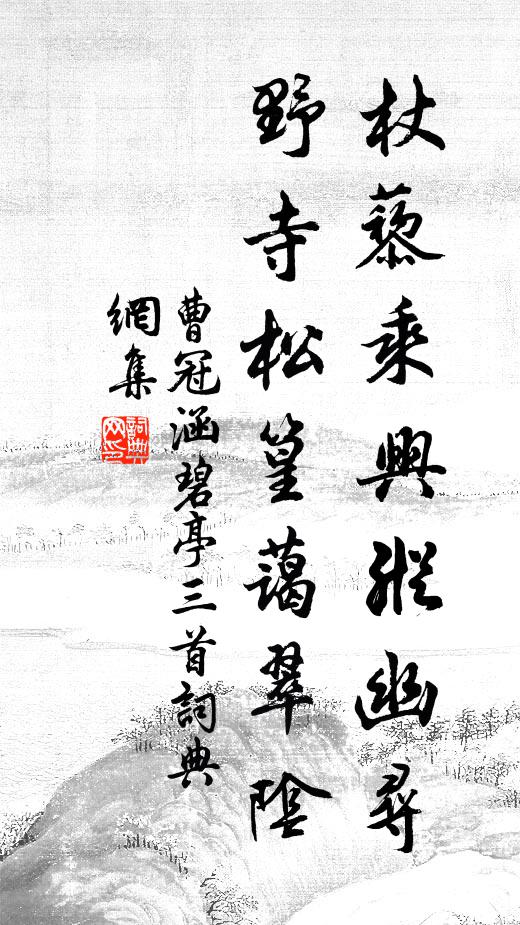 杖藜乘興縱幽尋
野寺松篁藹翠陰
曹冠涵碧亭三首詞典
網集
詞典
网